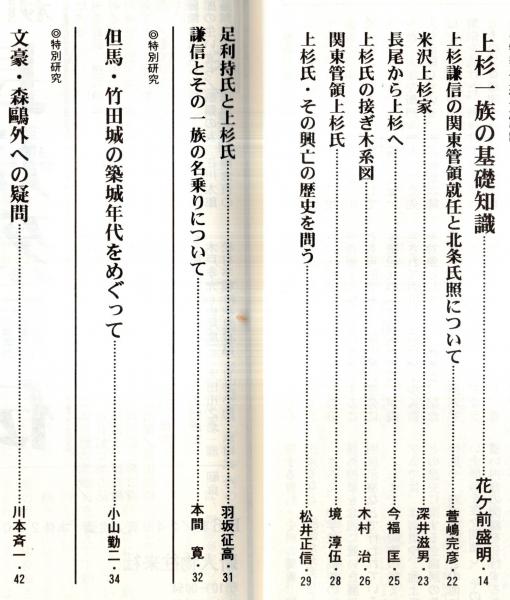 上杉一族の基礎知識……花ケ前盛明・14
上杉謙信の関東管領就任と北条氏照について……萱嶋完彦・22
米沢上杉家……深井滋男・23
長尾から上杉へ……今福 匡・25
上杉氏の接ぎ木系図……木村 治・26
関東管領上杉氏……境 淳伍・28
上杉氏・その興亡の歴史を問う……松井正信・29
足利持氏と上杉氏……羽坂征高・31
謙信とその一族の名乗りについて……本間 寛・32
◎特別研究
但馬・竹田城の築城年代をめぐって……小山勤二・34
◎特別研究
文豪・森鷗外への疑問……川本斉一・42